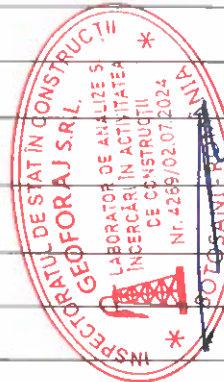 INSPECTORATUL DE STAT ÎN CONSTRUCȚII
GEOFORAJ S.R.L.
LABORATOR DE ANALIZE Ș
ÎNCERCĂRI ÎN ACTIVITATEA
DE CONSTRUCȚII
Nr. 4269/02.07.2024
BOTOȘANI